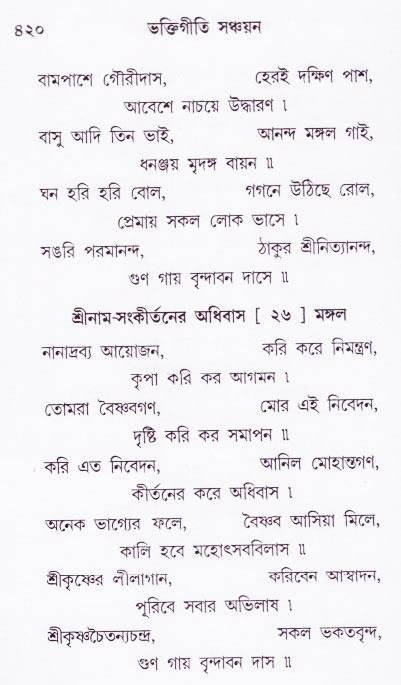 ৪২০ ভক্তিগীতি সঞ্চয়ন
বামপাশে গৌরীদাস, হেরই দক্ষিণ পাশ,
আবেশে নাচয়ে উদ্ধারণ ।
বাসু আদি তিন ভাই, আনন্দ মঙ্গল গাই,
ধনঞ্জয় মৃদঙ্গ বায়ন ॥
ঘন হরি হরি বোল, গগনে উঠিছে রোল,
প্রেমায় সকল লোক ভাসে ।
সঙরি পরমানন্দ, ঠাকুর শ্রীনিত্যানন্দ,
গুণ গায় বৃন্দাবন দাসে ॥
শ্রীনাম-সংকীর্তনের অধিবাস [ ২৬ ] মঙ্গল
নানাদ্রব্য আয়োজন, করি করে নিমন্ত্রণ,
কৃপা করি কর আগমন ।
তোমরা বৈষ্ণবগণ, মোর এই নিবেদন,
দৃষ্টি করি কর সমাপন ॥
করি এত নিবেদন, আনিল মোহান্তগণ,
কীর্তনের করে অধিবাস ।
অনেক ভাগ্যের ফলে, বৈষ্ণব আসিয়া মিলে,
কালি হবে মহোৎসববিলাস ॥
শ্রীকৃষ্ণের লীলাগান, করিবেন আস্বাদন,
পূরিবে সবার অভিলাষ ।
শ্রীকৃষ্ণচৈতন্যচন্দ্র, সকল ভকতবৃন্দ,
গুণ গায় বৃন্দাবন দাস ॥